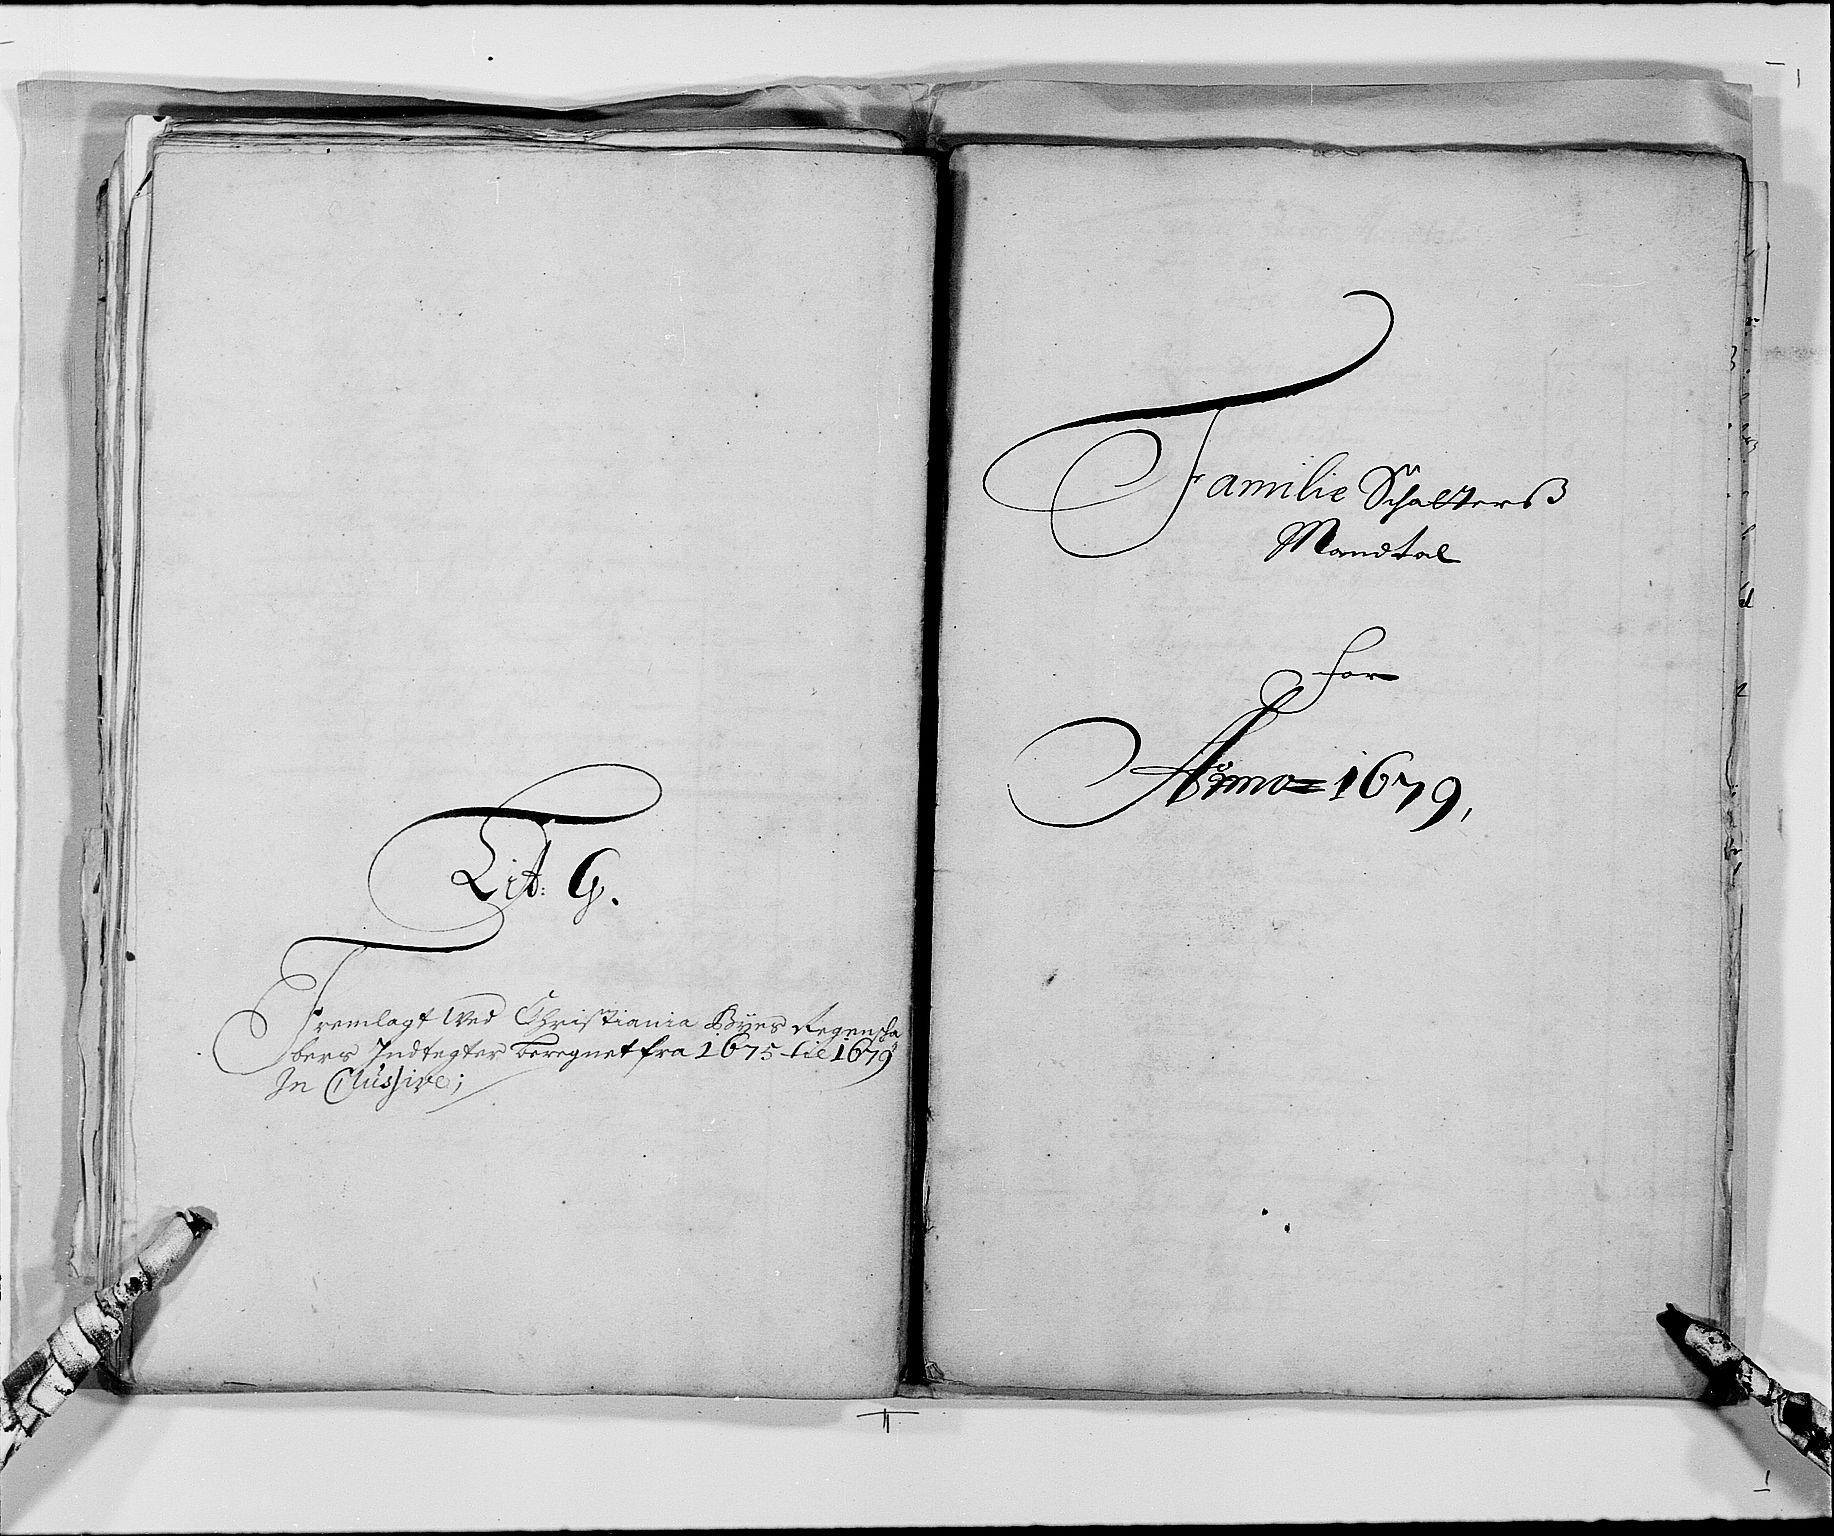 Lit: G.
Fremlagt Wed Christiania Byes Regenscha
bers Indtegter beregnet fra 1675 til 1679
In Clusive;
Familie Schatterß
Mandtal
for
Anno 1679,